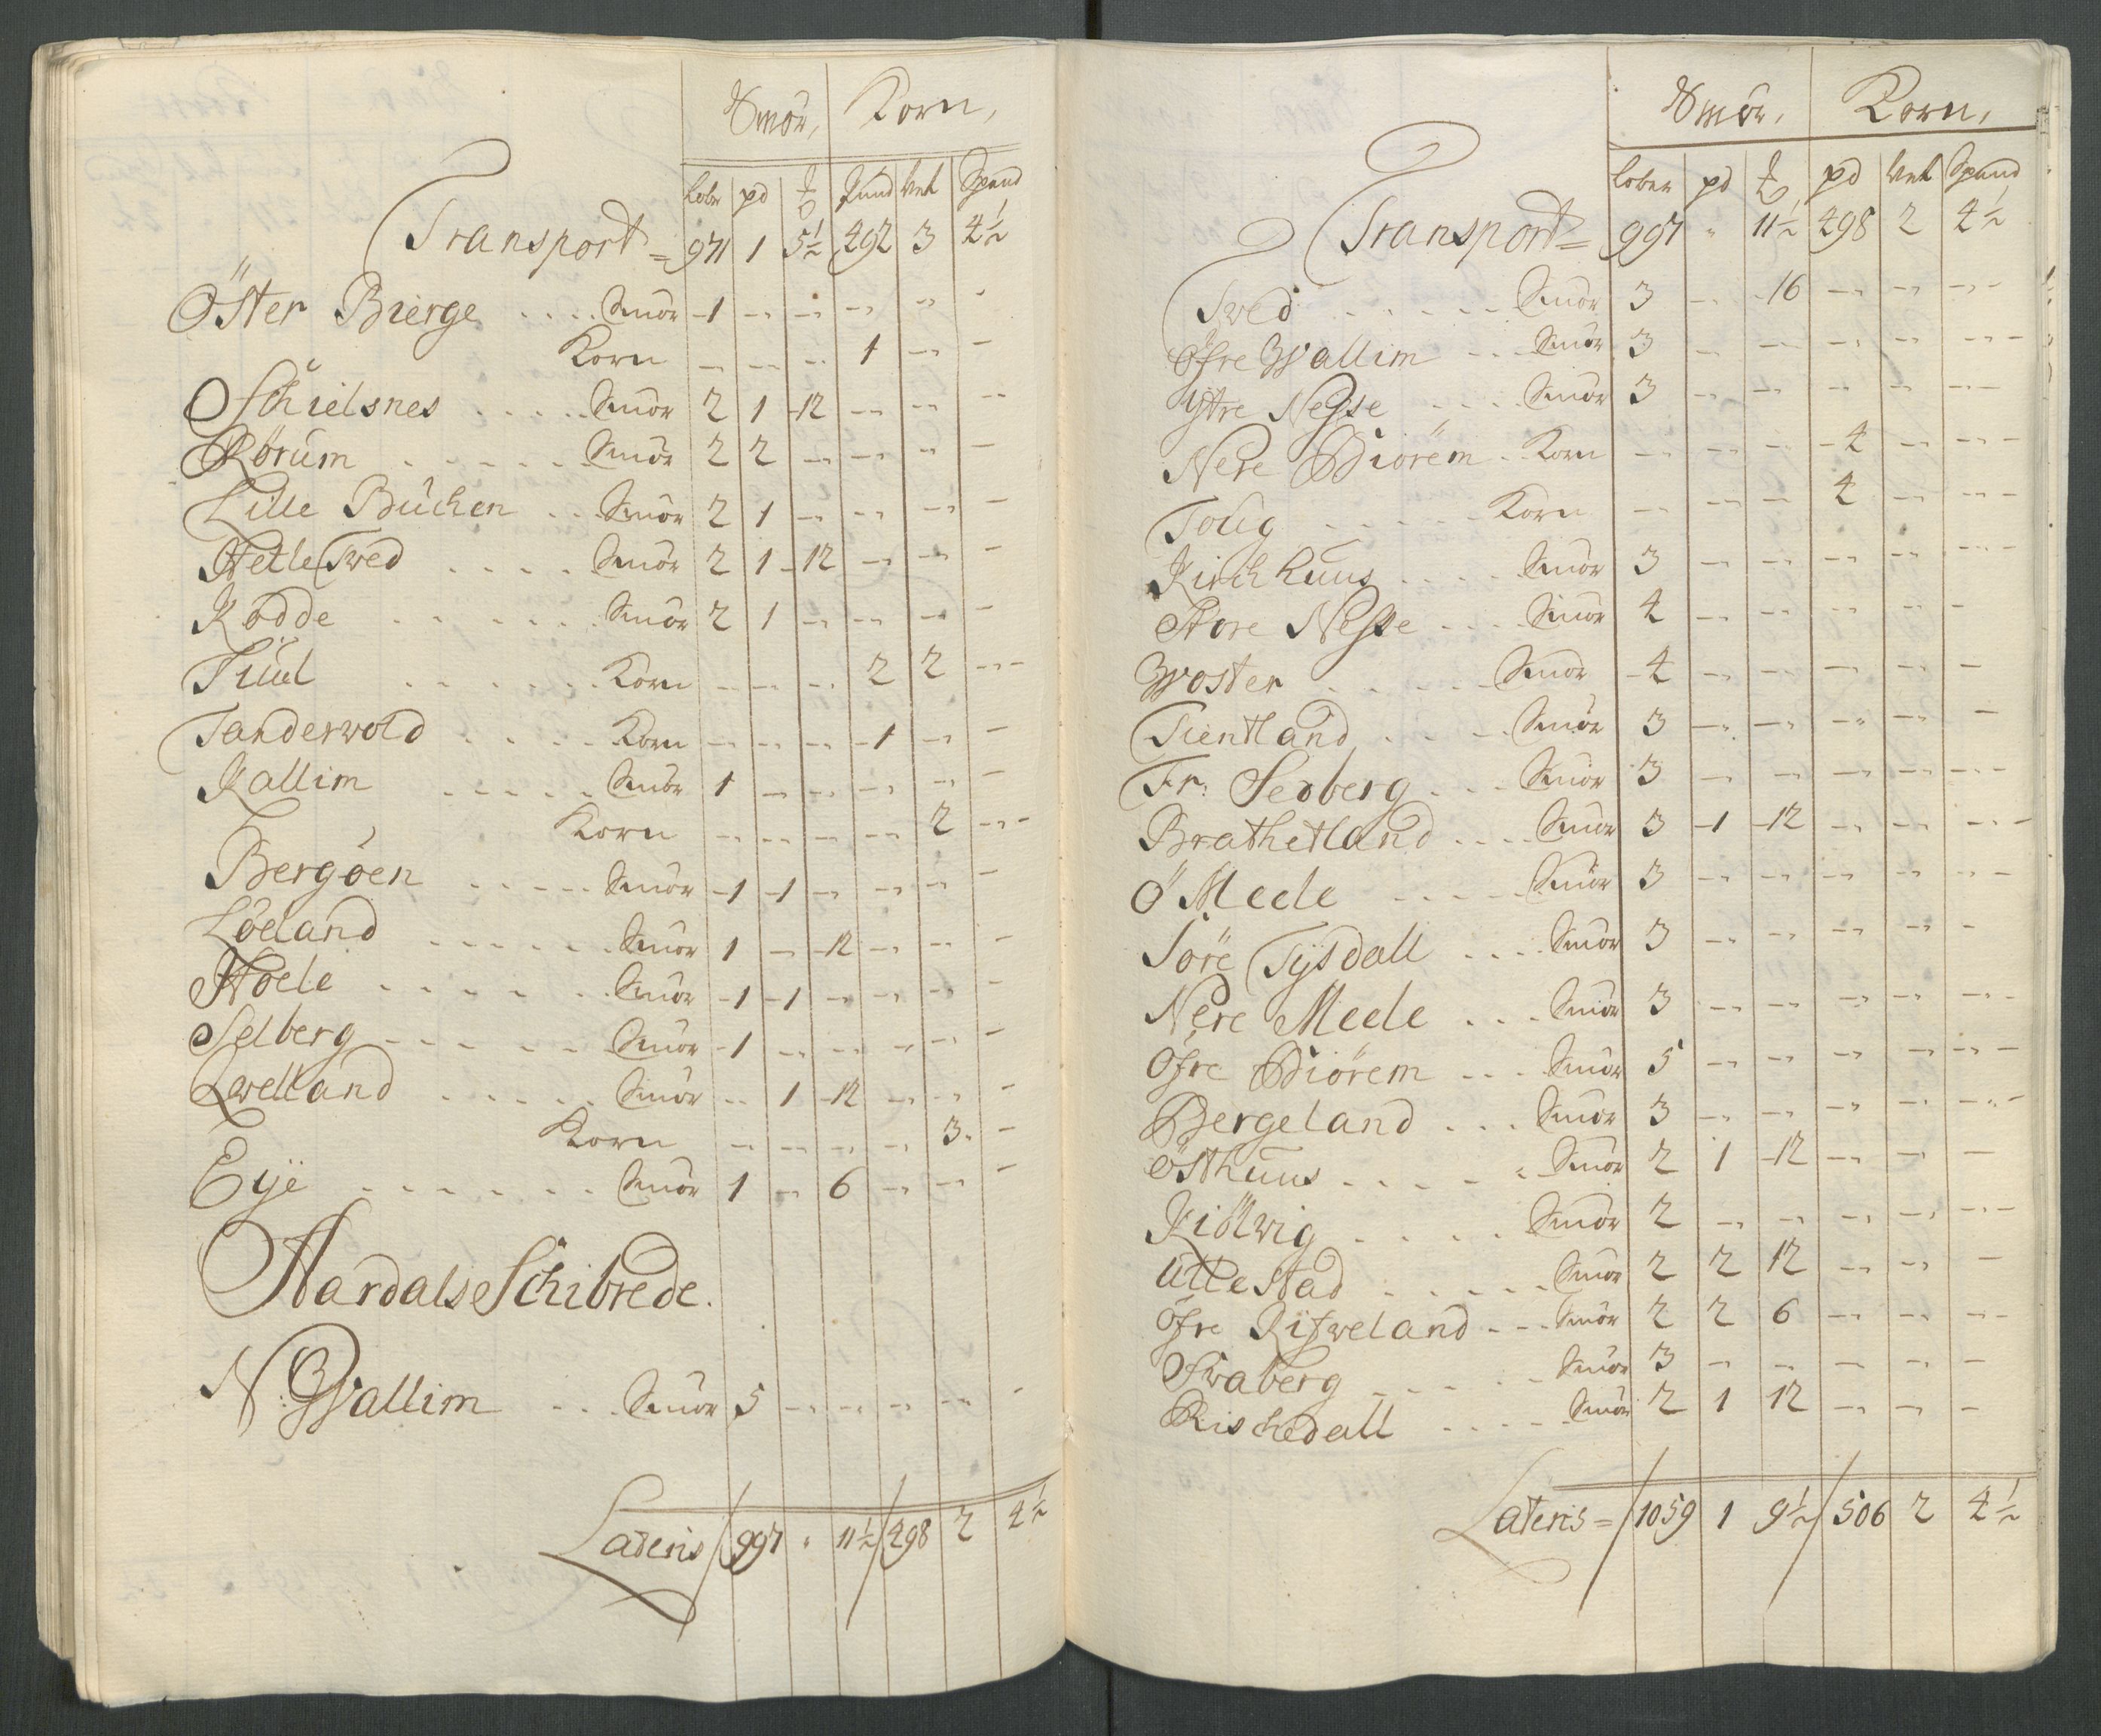 Smör, Korn,
Lober pd ℔ Pund Vet Spand
Transport = 971 1 5½ 492 3 4½
Öster Bierge .... Smör - 1 - - - - -
Korn - - - 1 - -
Schielsnes ..... Smör 2 1 - 12 - - -
Rørum ..... Smör 2 2 - - - -
Lille Buchen .. Smör 2 1 - - - -
Hetle Tved .... Smör 2 1 - 12 - - -
Kodde ...... Smör 2 1 - - - -
Tuul ...... Korn - - - 2 2 - -
Tandervold ..... Korn - - - - 1 - -
Kallim ..... Smör 1 - - - - -
Korn - - - - 2 - -
Bergöen ..... Smör - 1 - 1 - - - -
Löeland ...... Smör 1 - - 12 - - -
Hoele ...... Smör - 1 - 1 - - - -
Selberg ------ Smör - 1 - - - - -
Qvelland ..... Smör - 1 - 12 - - -
Korn - - - - 3 - -
Eÿe ....... Smör 1 - 6 - - -
Hardals Schibrede.
N: Wallim ... Smör 5 - - - - -
Lateris 997 " 11½ 498 2 4½
Smör, Korn,
Lober pd ℔ pd Vet Spand
Transport = 997 " 11½ 498 2 4½
Tved ...... Smör 3 - - 16 - - - -
Öfre Wallim .. Smör 3 - - - - - -
Ÿtre Nesse ... Smör 3 - - - - - -
Nere Biörem . Korn - - - - 4 - - -
Toug ..... Korn - - - 4 - - -
Kirchhuus .... Smör 3 - - - - - -
Store Nesse .... Smör 4 - - - - -
Woster ..... Smör - 4 - - - - -
Tientland .... Smör 3 - - - - -
Fr: Seoberg ... Smör 3 - - - - - -
Brathetland .... Smör 3 - 1 - 12 - - - -
Ö Meele ..... Smör 3 - - - - - -
Söre Tÿsdall .... Smör 3 - - - - -
Nere Meele ... Smör 3 - - - - - -
Öfre Biörem ... Smör 5 - - - - - -
Bergeland ... Smör 3 - - - - - -
Östhuus ..... Smör 2 1 - 12 - - -
Kiölvig .... Smör 2 - - - - - -
Ullestad ..... Smör 2 2 12 - - -
Öfre Rifveland --- Smör 2 2 6 - - - -
Svaberg ----- Smör 3 - - - - -
Rischedall ..... Smör 2 1 12 - - -
Lateris = 1059 1 9½ 506 2 4½